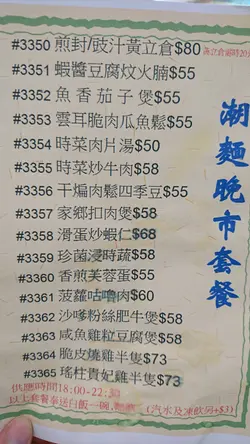 #3350 煎封/豉汁黃立倉$80
#3351 蝦醬豆腐炆火腩$55
#3352 魚香茄子煲$55
#3353 雲耳脆肉瓜魚鬆$55
#3354 時菜肉片湯$50
#3355 時菜炒牛肉$58
#3356 干煸肉鬆四季豆$55
#3357 家鄉扣肉煲$58
#3358 滑蛋炒蝦仁$68
#3359 珍菌浸時蔬$58
#3360 香煎芙蓉蛋$55
#3361 菠蘿咕嚕肉$60
#3362 沙嗲粉絲肥牛煲$58
#3363 咸魚雞粒豆腐煲$58
#3364 脆皮燒雞半隻$73
#3365 瑤柱貴妃雞半隻$73
供應時間18:00-22:30
以上套餐奉送白飯一碗,熱飲 (汽水及凍飲另+$3)
潮麵晚市套餐